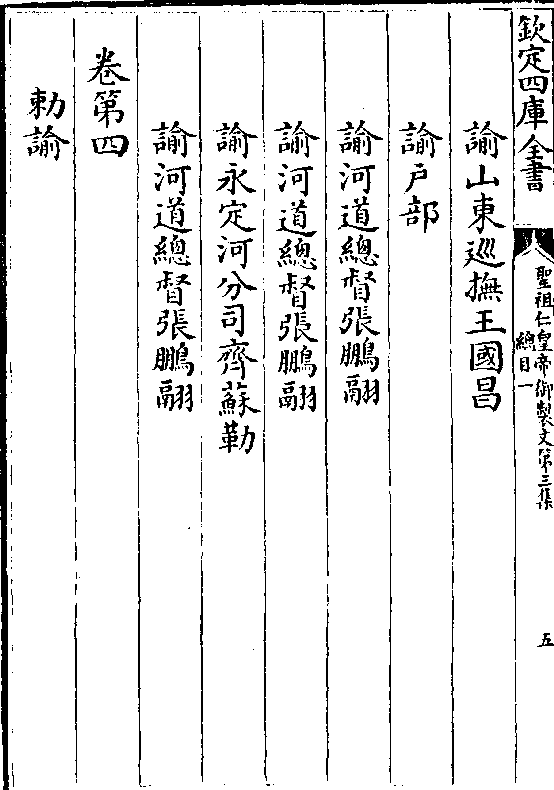 欽定四庫全書
聖祖仁皇帝御製文第三集
總目一
五
諭山東巡撫王國昌
諭户部
諭河道總督張鵬翮
諭河道總督張鵬翮
諭永定河分司齊蘇勒
諭河道總督張鵬翮
卷第四
勅諭